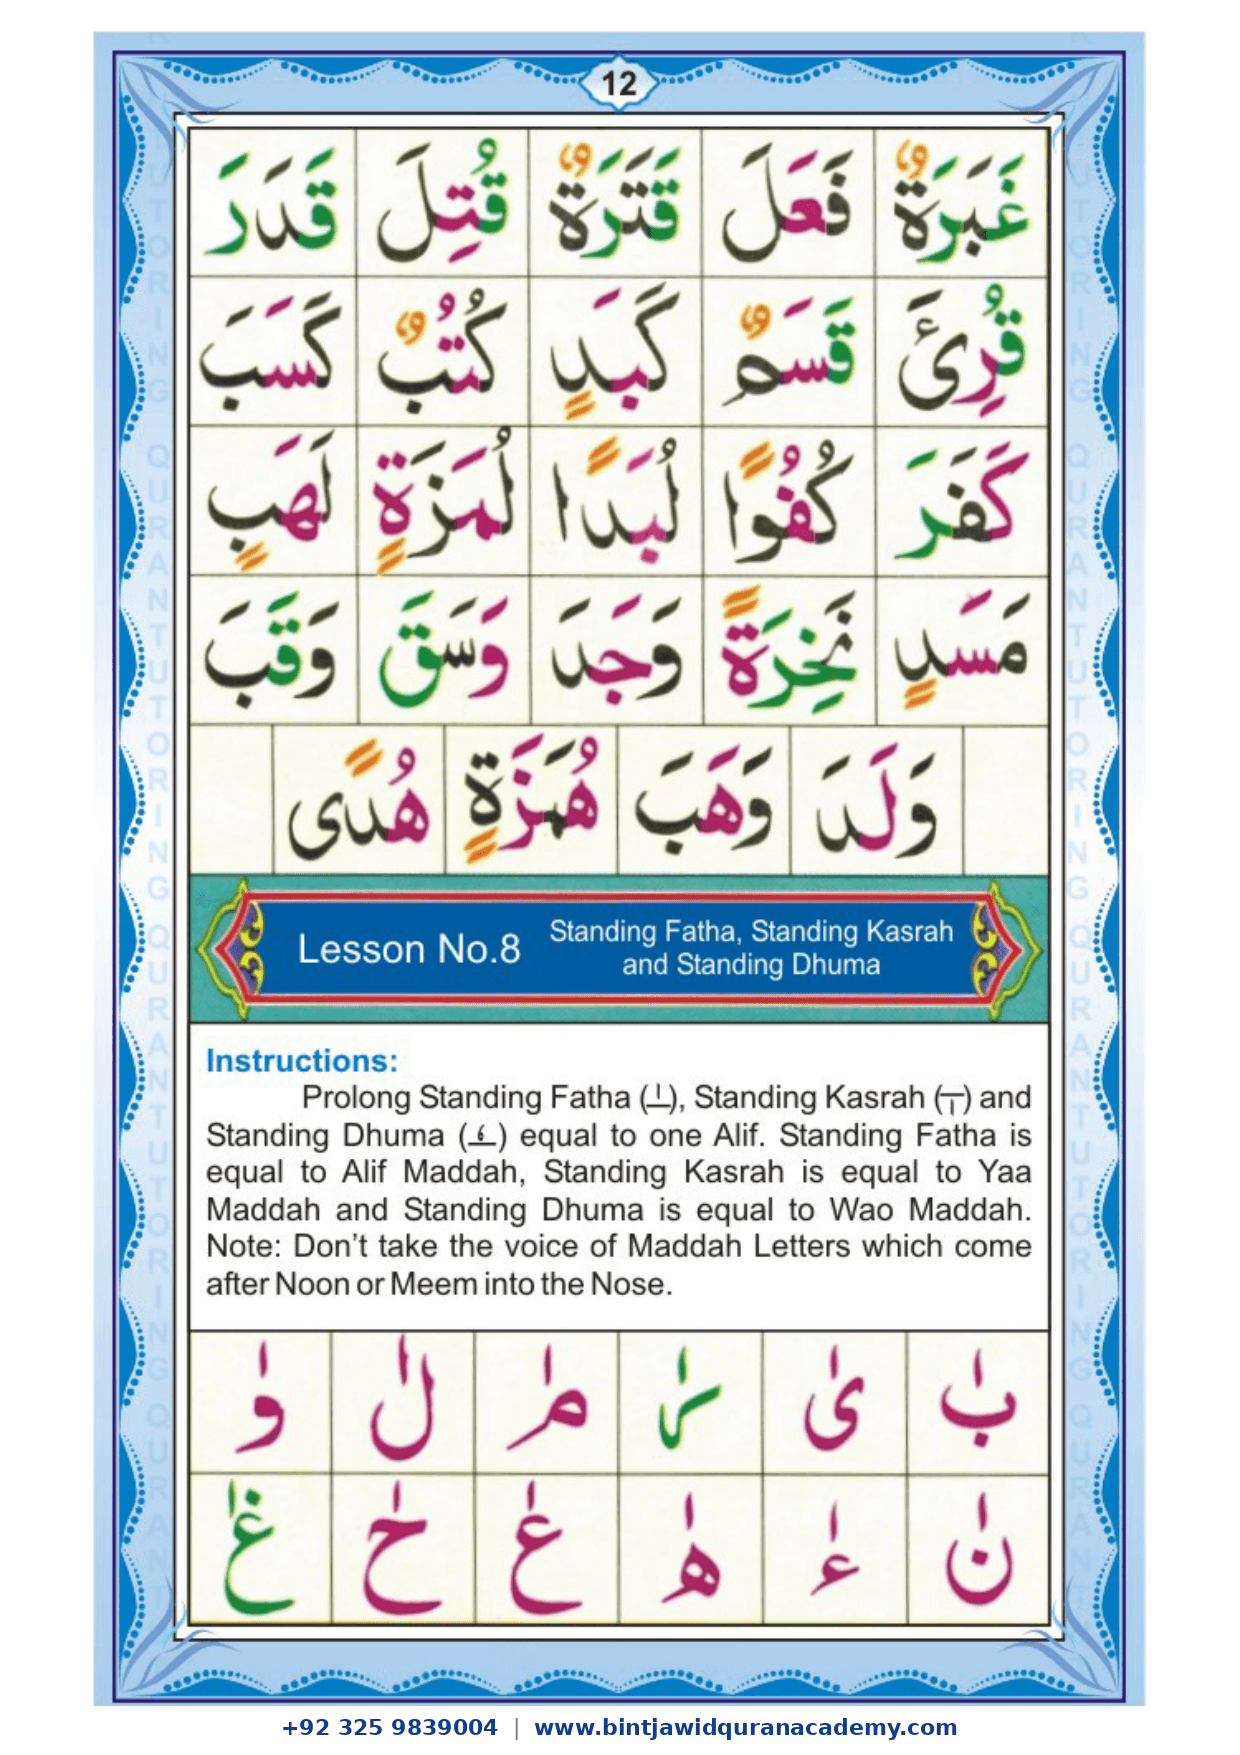 12
غَبَرَةٌ فَعَلَ قَتَرَةٌ قُتِلَ قَدَرَ
قُرِئَ قَسَمٌ كَبَدٍ كُتُبٌ كَسَبَ
كَفَرَ كُفُوًا لُبَدًا لُمَزَةٍ لَهَبٍ
مَسَدٍ نَخِرَةً وَجَدَ وَسَقَ وَقَبَ
وَلَدَ وَهَبَ هُمَزَةٍ هُدًى
Lesson No.8
Standing Fatha, Standing Kasrah
and Standing Dhuma
Instructions:
Prolong Standing Fatha (ـٰ), Standing Kasrah (ـٖ) and
Standing Dhuma (ـٗ) equal to one Alif. Standing Fatha is
equal to Alif Maddah, Standing Kasrah is equal to Yaa
Maddah and Standing Dhuma is equal to Wao Maddah.
Note: Don't take the voice of Maddah Letters which come
after Noon or Meem into the Nose.
بٰ یٰ رٰ مٰ لٰ وٰ
نٰ ءٰ هٰ عٰ حٰ غٰ
QURAN TUTORING QURAN TUTORING
QURAN TUTORING QURAN TUTORING
+92 325 9839004 | www.bintjawidquranacademy.com